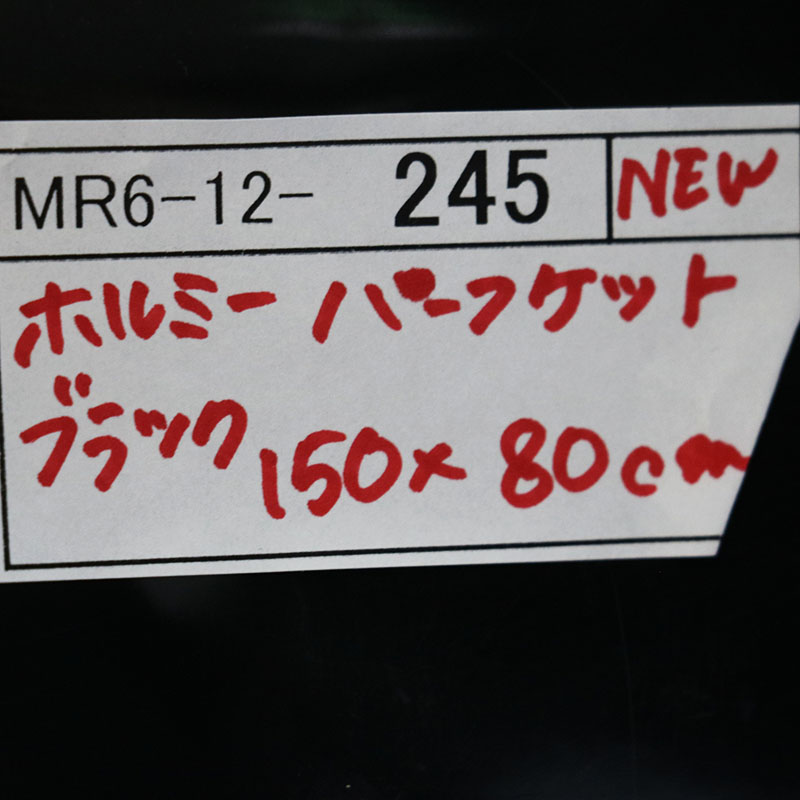 MR6-12- 245 NEW
ホルミー パーフケット
ブラック 150×80cm